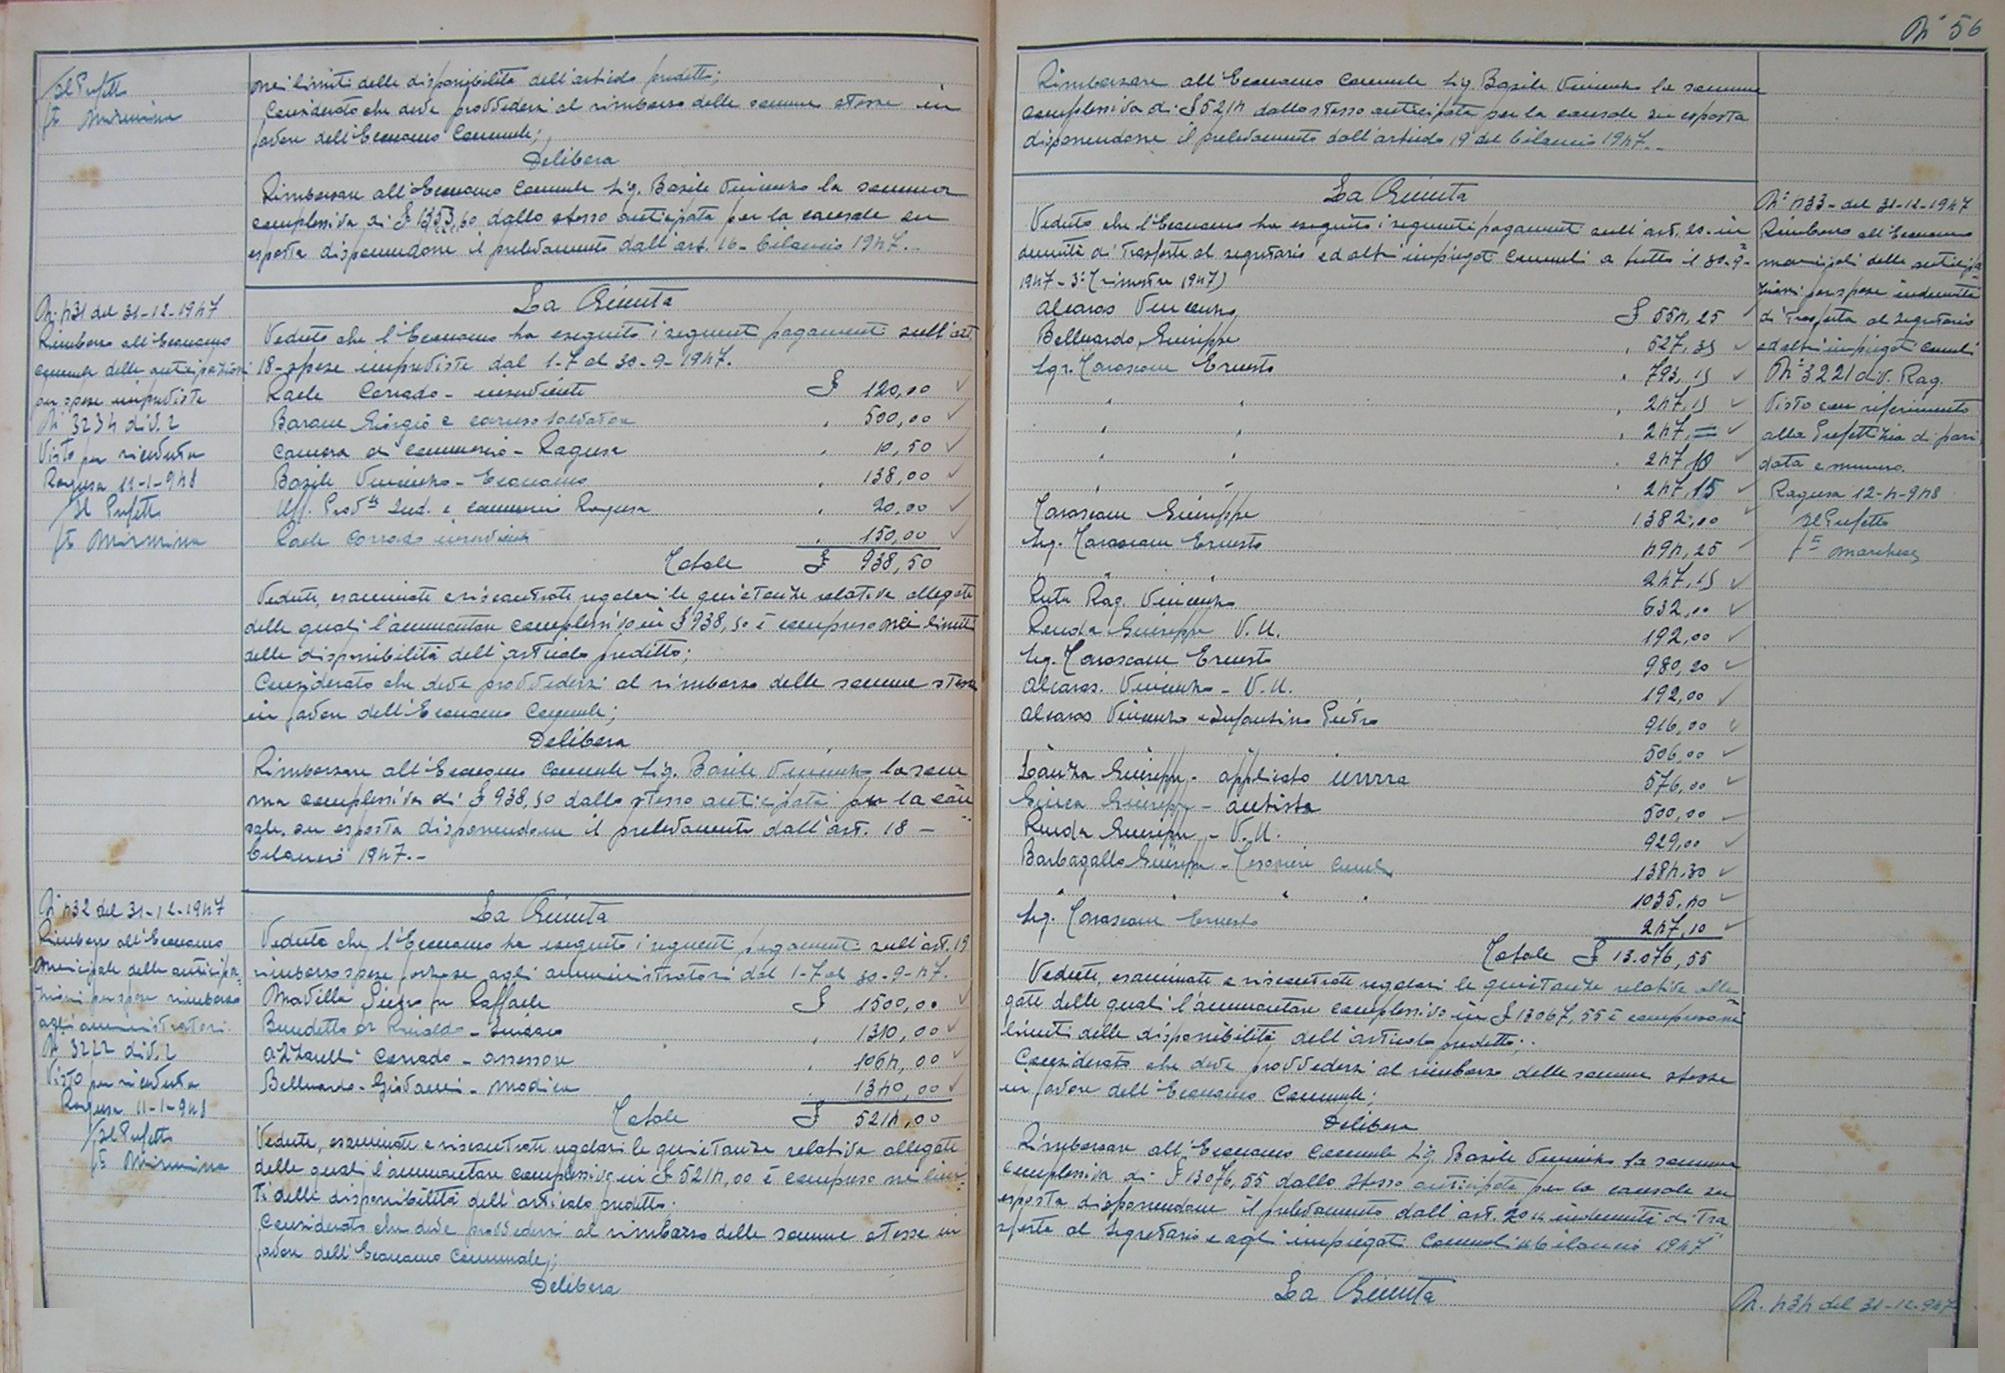 N° 56
Il Prefetto
fto Mormina
nei limiti delle disponibilità dell'articolo predetto;
Considerato che deve provvedersi al rimborso delle somme stesse in
favore dell'Economo Comunale;
Delibera
Rimborsare all'Economo Comunale Sig. Basile Vincenzo la somma
complessiva di £ 1353,60 dallo stesso anticipata per la causale su
esposta disponendone il prelevamento dall'art. 16 - bilancio 1947.-
N. 431 del 31-12-1947
Rimborso all'Economo
comunale delle anticipazioni
per spese impreviste
N° 3234 div. 2
Visto per ricevuta
Ragusa 11-1-948
Il Prefetto
fto Mormina
La Giunta
Veduto che l'Economo ha eseguito i seguenti pagamenti sull'art.
18 - spese impreviste dal 1-7 al 30-9-1947.
Corrado - £ 120,00
Giorgio e Caruso Salvatore " 500,00
Camera di Commercio - Ragusa " 10,50
Basile Vincenzo - Economo " 138,00
Uff. Prov.le Ind. e Commercio Ragusa " 20,00
Corrado " 150,00
Totale £ 938,50
Vedute, esaminate e riscontrate regolari le quietanze relative allegate
delle quali l'ammontare complessivo in £ 938,50 è compreso nei limiti
delle disponibilità dell'articolo predetto;
Considerato che deve provvedersi al rimborso delle somme stesse
in favore dell'Economo Comunale;
Delibera
Rimborsare all'Economo Comunale Sig. Basile Vincenzo la som
ma complessiva di £ 938,50 dallo stesso anticipata per la cau
sale su esposta disponendone il prelevamento dall'art. 18 -
bilancio 1947.-
N° 432 del 31-12-1947
Rimborso all'Economo
municipale delle anticipa
zioni per spese rimborso
agli amministratori
N. 3222 div. 2
Visto per ricevuta
Ragusa 11-1-948
Il Prefetto
fto Mormina
La Giunta
Veduto che l'Economo ha eseguito i seguenti pagamenti sull'art. 19
rimborso spese forzose agli amministratori dal 1-7 al 30-9-47.
fu Raffaele £ 1500,00
Benedetto - Sindaco " 1310,00
Azzarelli Corrado - assessore " 1064,00
Belluardo Giovanni - Modica " 1340,00
Totale £ 5214,00
Vedute, esaminate e riscontrate regolari le quietanze relative allegate
delle quali l'ammontare complessivo in £ 5214,00 è compreso nei limi
ti delle disponibilità dell'articolo predetto;
Considerato che deve provvedersi al rimborso delle somme stesse in
favore dell'Economo Comunale;
Delibera
Rimborsare all'Economo Comunale Sig. Basile Vincenzo la somma
complessiva di £ 5214 dallo stesso anticipata per la causale su esposta
disponendone il prelevamento dall'articolo 19 del bilancio 1947.-
La Giunta
Veduto che l'Economo ha eseguito i seguenti pagamenti sull'art. 20 - in
dennità di trasferte al segretario ed altri impiegati Comunali a tutto il 30-9-
1947 - 3° Trimestre 1947)
Alcaros Vincenzo £ 554,25
Belluardo Giuseppe " 527,35
Sgr. Tarascone Ernesto " 793,15
" " " 247,15
" " " 247,=
" " " 247,10
" " " 247,15
Tarascone Giuseppe 1382,00
Sig. Tarascone Ernesto 494,25
" 247,15
Ruta Rag. Vincenzo 632,00
Renda Giuseppe V.U. 192,00
Sig. Tarascone Ernesto 980,20
Alcaros Vincenzo - V.U. 192,00
Alcaros Vincenzo e Infantino Pietro 916,00
" " 506,00
Giuseppe - applicato 576,00
Giuseppe - autista 500,00
Renda Giuseppe - V.U. 929,00
Barbagallo Giuseppe - Tesoriere Com.le 1384,30
" " " 1035,40
Sig. Tarascone Ernesto 247,10
Totale £ 13.076,55
Vedute, esaminate e riscontrate regolari le quietanze relative alle
gate delle quali l'ammontare complessivo in £ 13067,55 è compreso nei
limiti delle disponibilità dell'articolo predetto;
Considerato che deve provvedersi al rimborso delle somme stesse
in favore dell'Economo Comunale;
Delibera
Rimborsare all'Economo Comunale Sig. Basile Vincenzo la somma
complessiva di £ 13076,55 dallo stesso anticipata per la causale su
esposta disponendone il prelevamento dall'art. 20 "indennità di tra
sferte al Segretario e agli impiegati Comunali" bilancio 1947
La Giunta
N° 433 - del 31-12-1947
Rimborso all'Economo
municipale delle anticipa
zioni per spese indennità
di trasferta al Segretario
ed altri impiegati Com.li
N° 3221 div. Rag.
Visto con riferimento
alla Prefettizia di pari
data e numero.
Ragusa 12-4-948
Il Prefetto
fto Marchese
N. 434 del 31-12-947